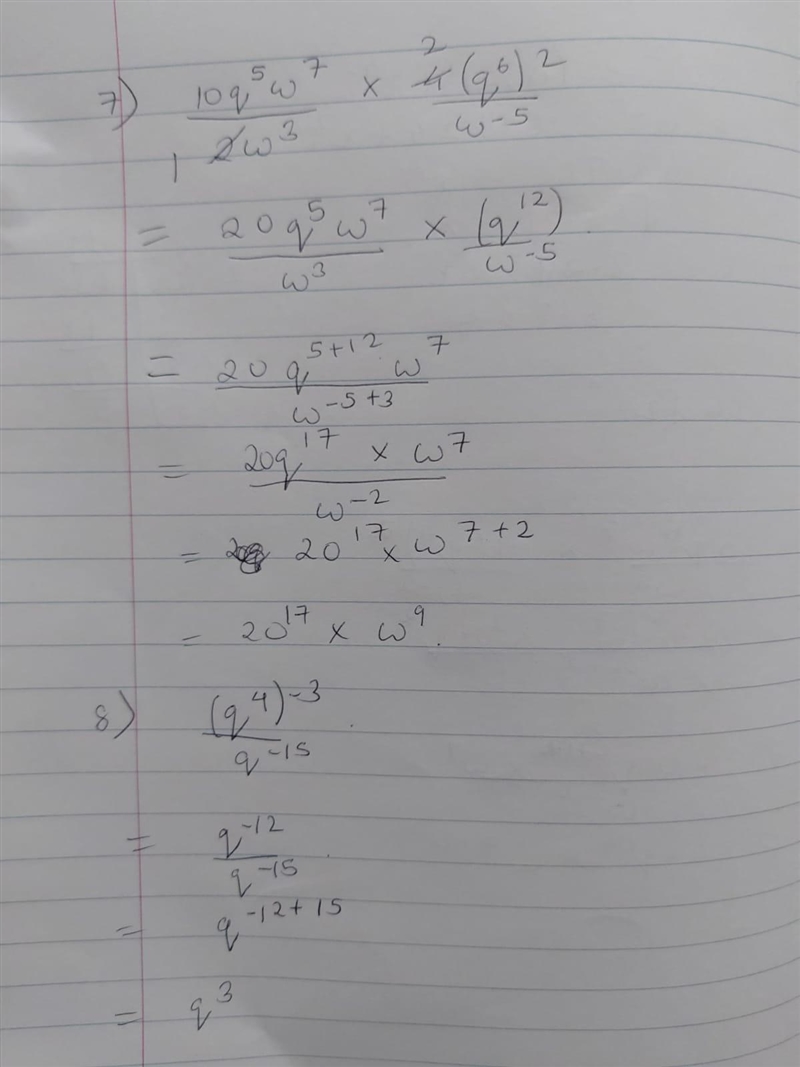 7) 10q⁵ω⁷ / 2ω³ × 4(q⁶)² / ω⁻⁵
1 2
= 20q⁵ω⁷ / ω³ × (q¹²) / ω⁻⁵
= 20q⁵⁺¹²ω⁷ / ω⁻⁵⁺³
= 20q¹⁷ × ω⁷ / ω⁻²
= 20¹⁷ × ω⁷⁺²
= 20¹⁷ × ω⁹.
8) (q⁴)⁻³ / q⁻¹⁵
= q⁻¹² / q⁻¹⁵
= q⁻¹²⁺¹⁵
= q³